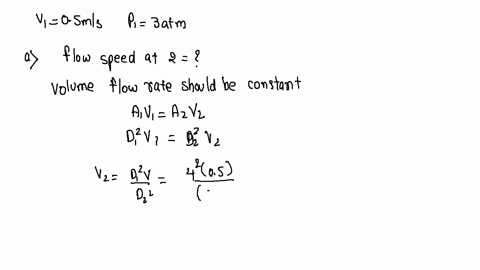 V₁=0.5m/s P₁=3atm
a) flow speed at 2=?
Volume flow rate should be constant
A₁V₁=A₂V₂
D₁²V₁ = D₂² V₂
V₂= D₁²V/D₂² = 4²(0.5)/(.